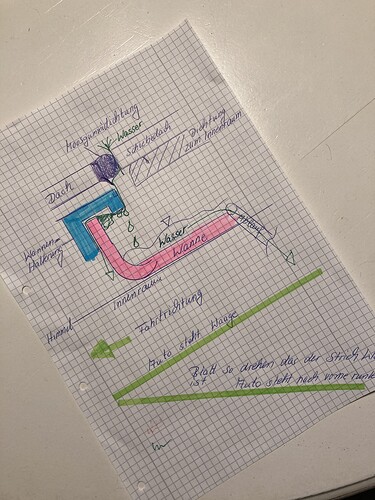 Moosgummidichtung
Wasser
Schiebedach
Dichtung
zum Innenraum
Dach
Wannen-
Halterung
Wasser
Ablauf
Wanne
Innenraum
Himmel
Fahrtrichtung
Auto steht Waage
Blatt so drehen das der Strich Wa
ist
Auto steht nach vorne runte